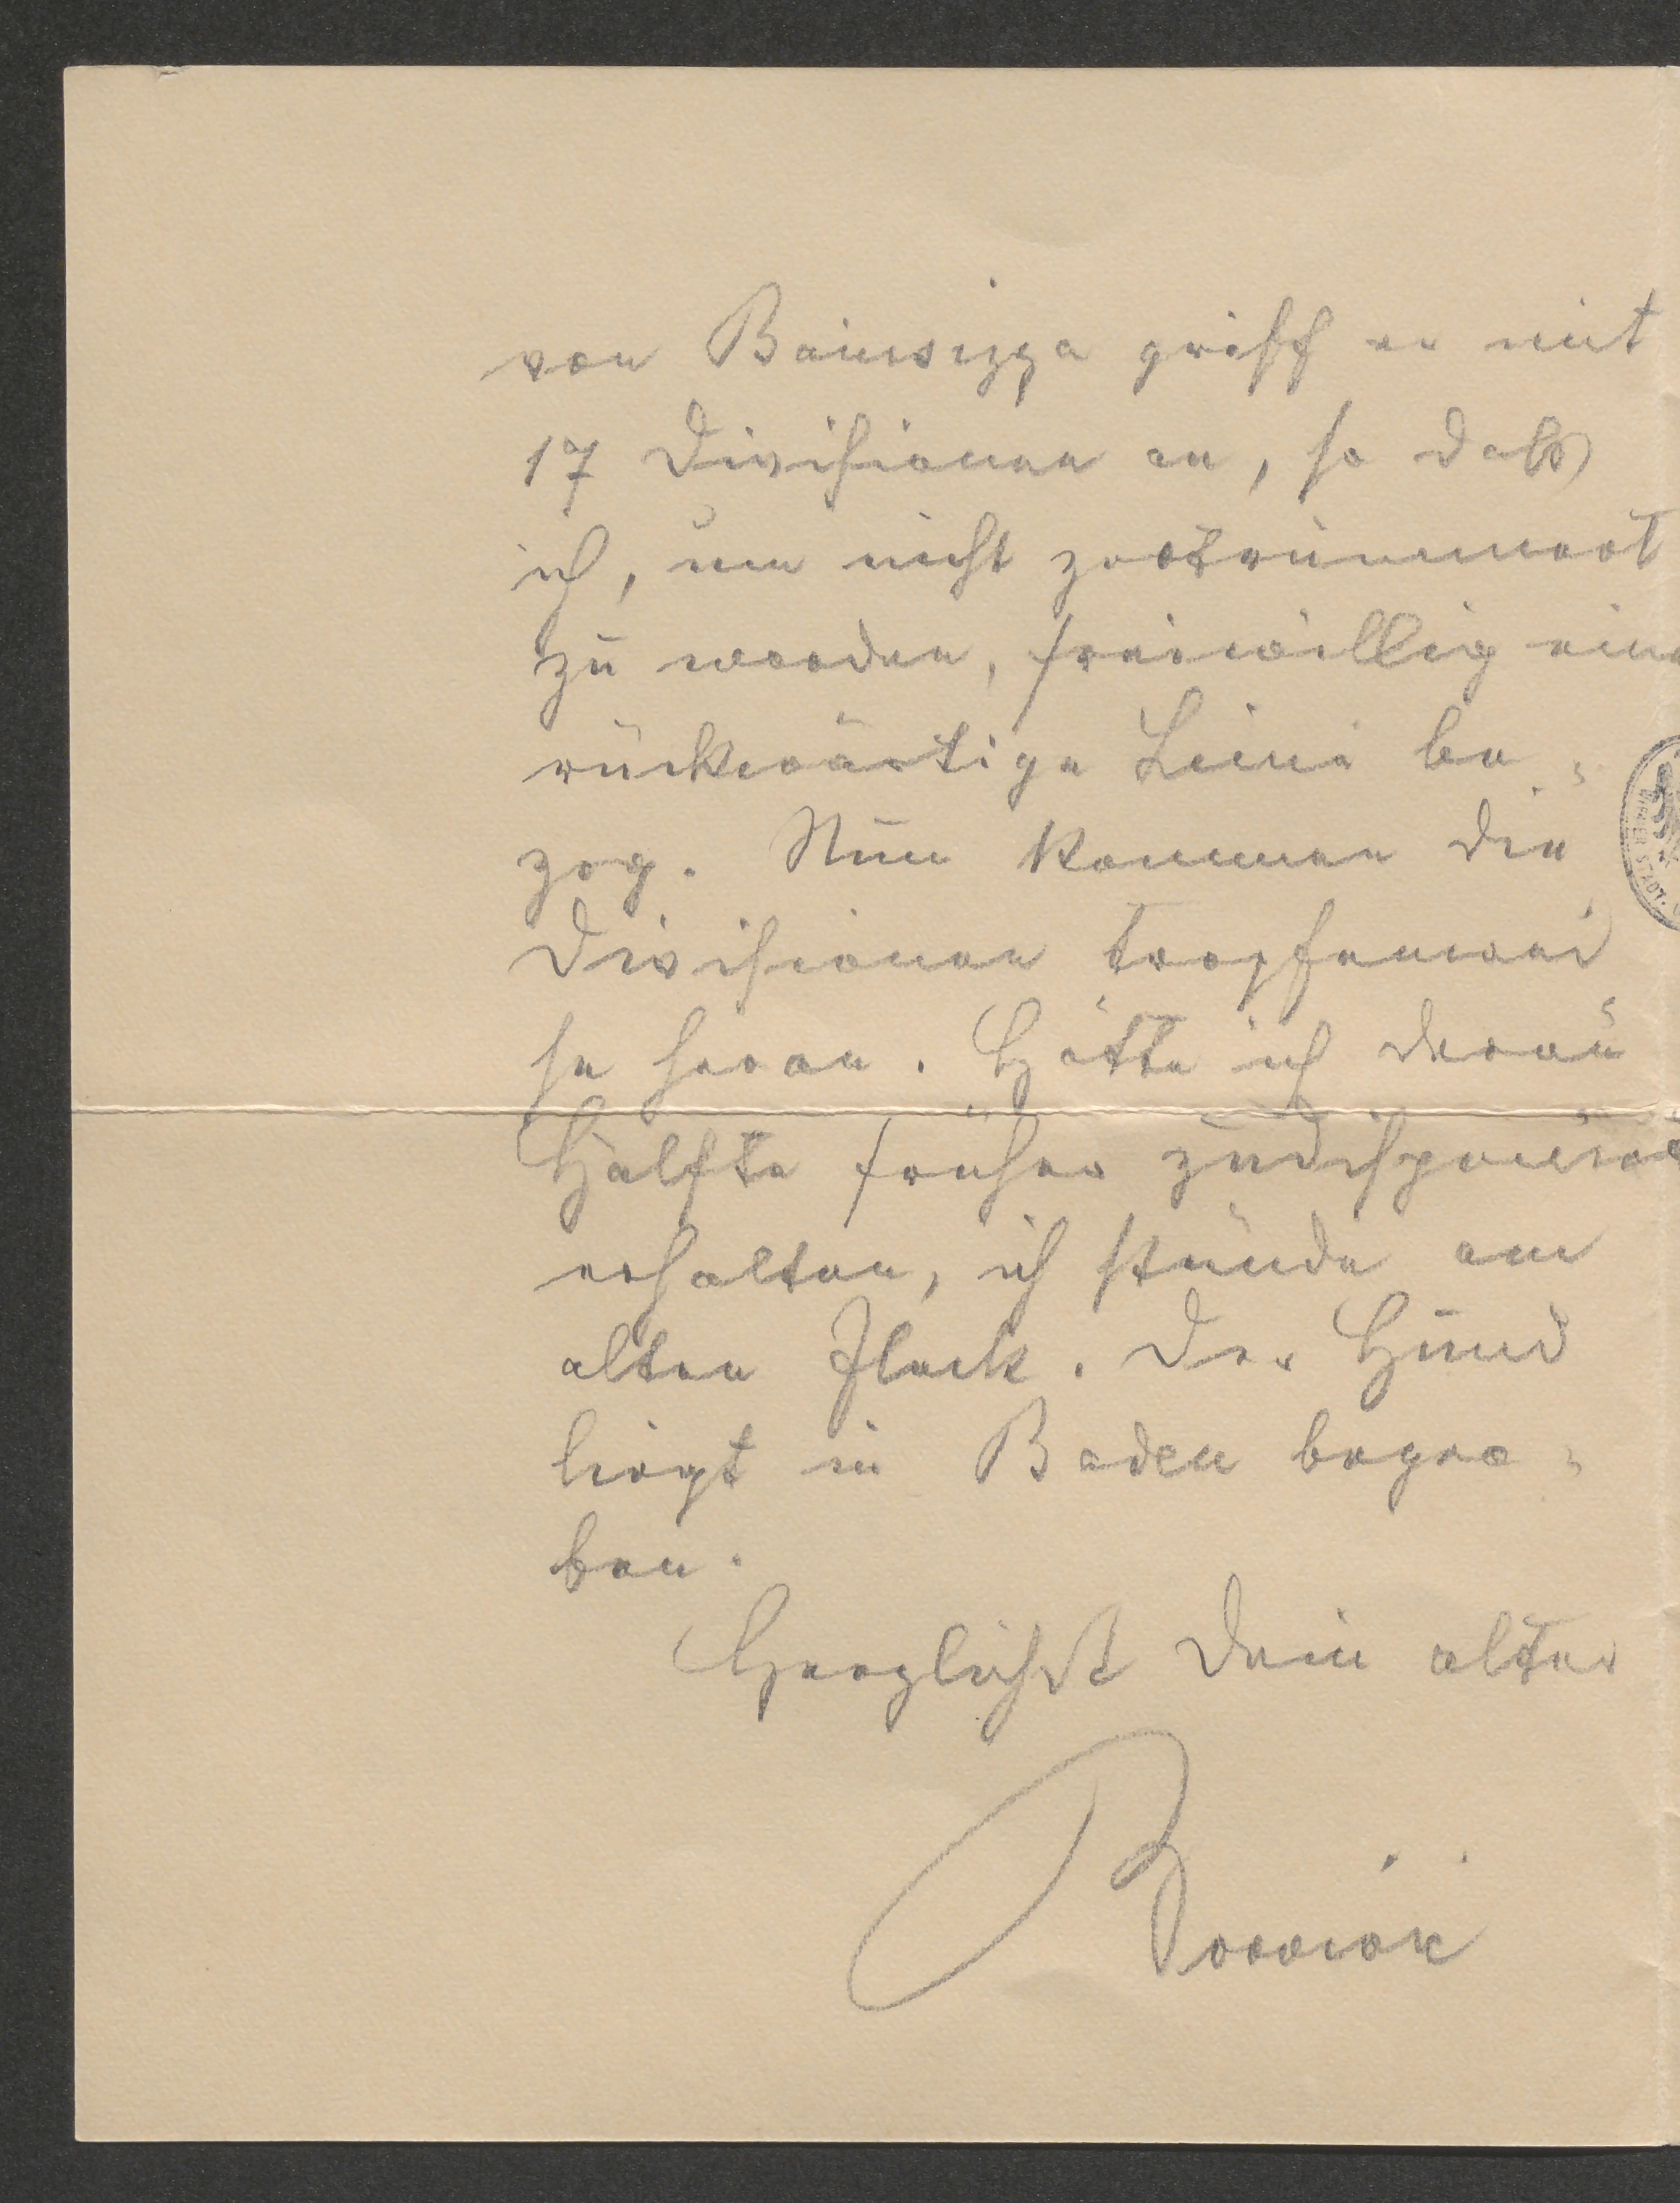 von Bainsizza griff er mit
17 Divisionen an, so daß
ich, um nicht zertrümmert
zu werden, freiwillig eine
rückwärtige Linie be=
zog. Nun kommen die
Divisionen tropfenwei
se heran. Hätte ich deren
Hälfte früher
erhalten, ich stünde am
alten Fleck. Der Hund
liegt in Baden begra=
ben.
Herzlichst Dein alter
Boroević